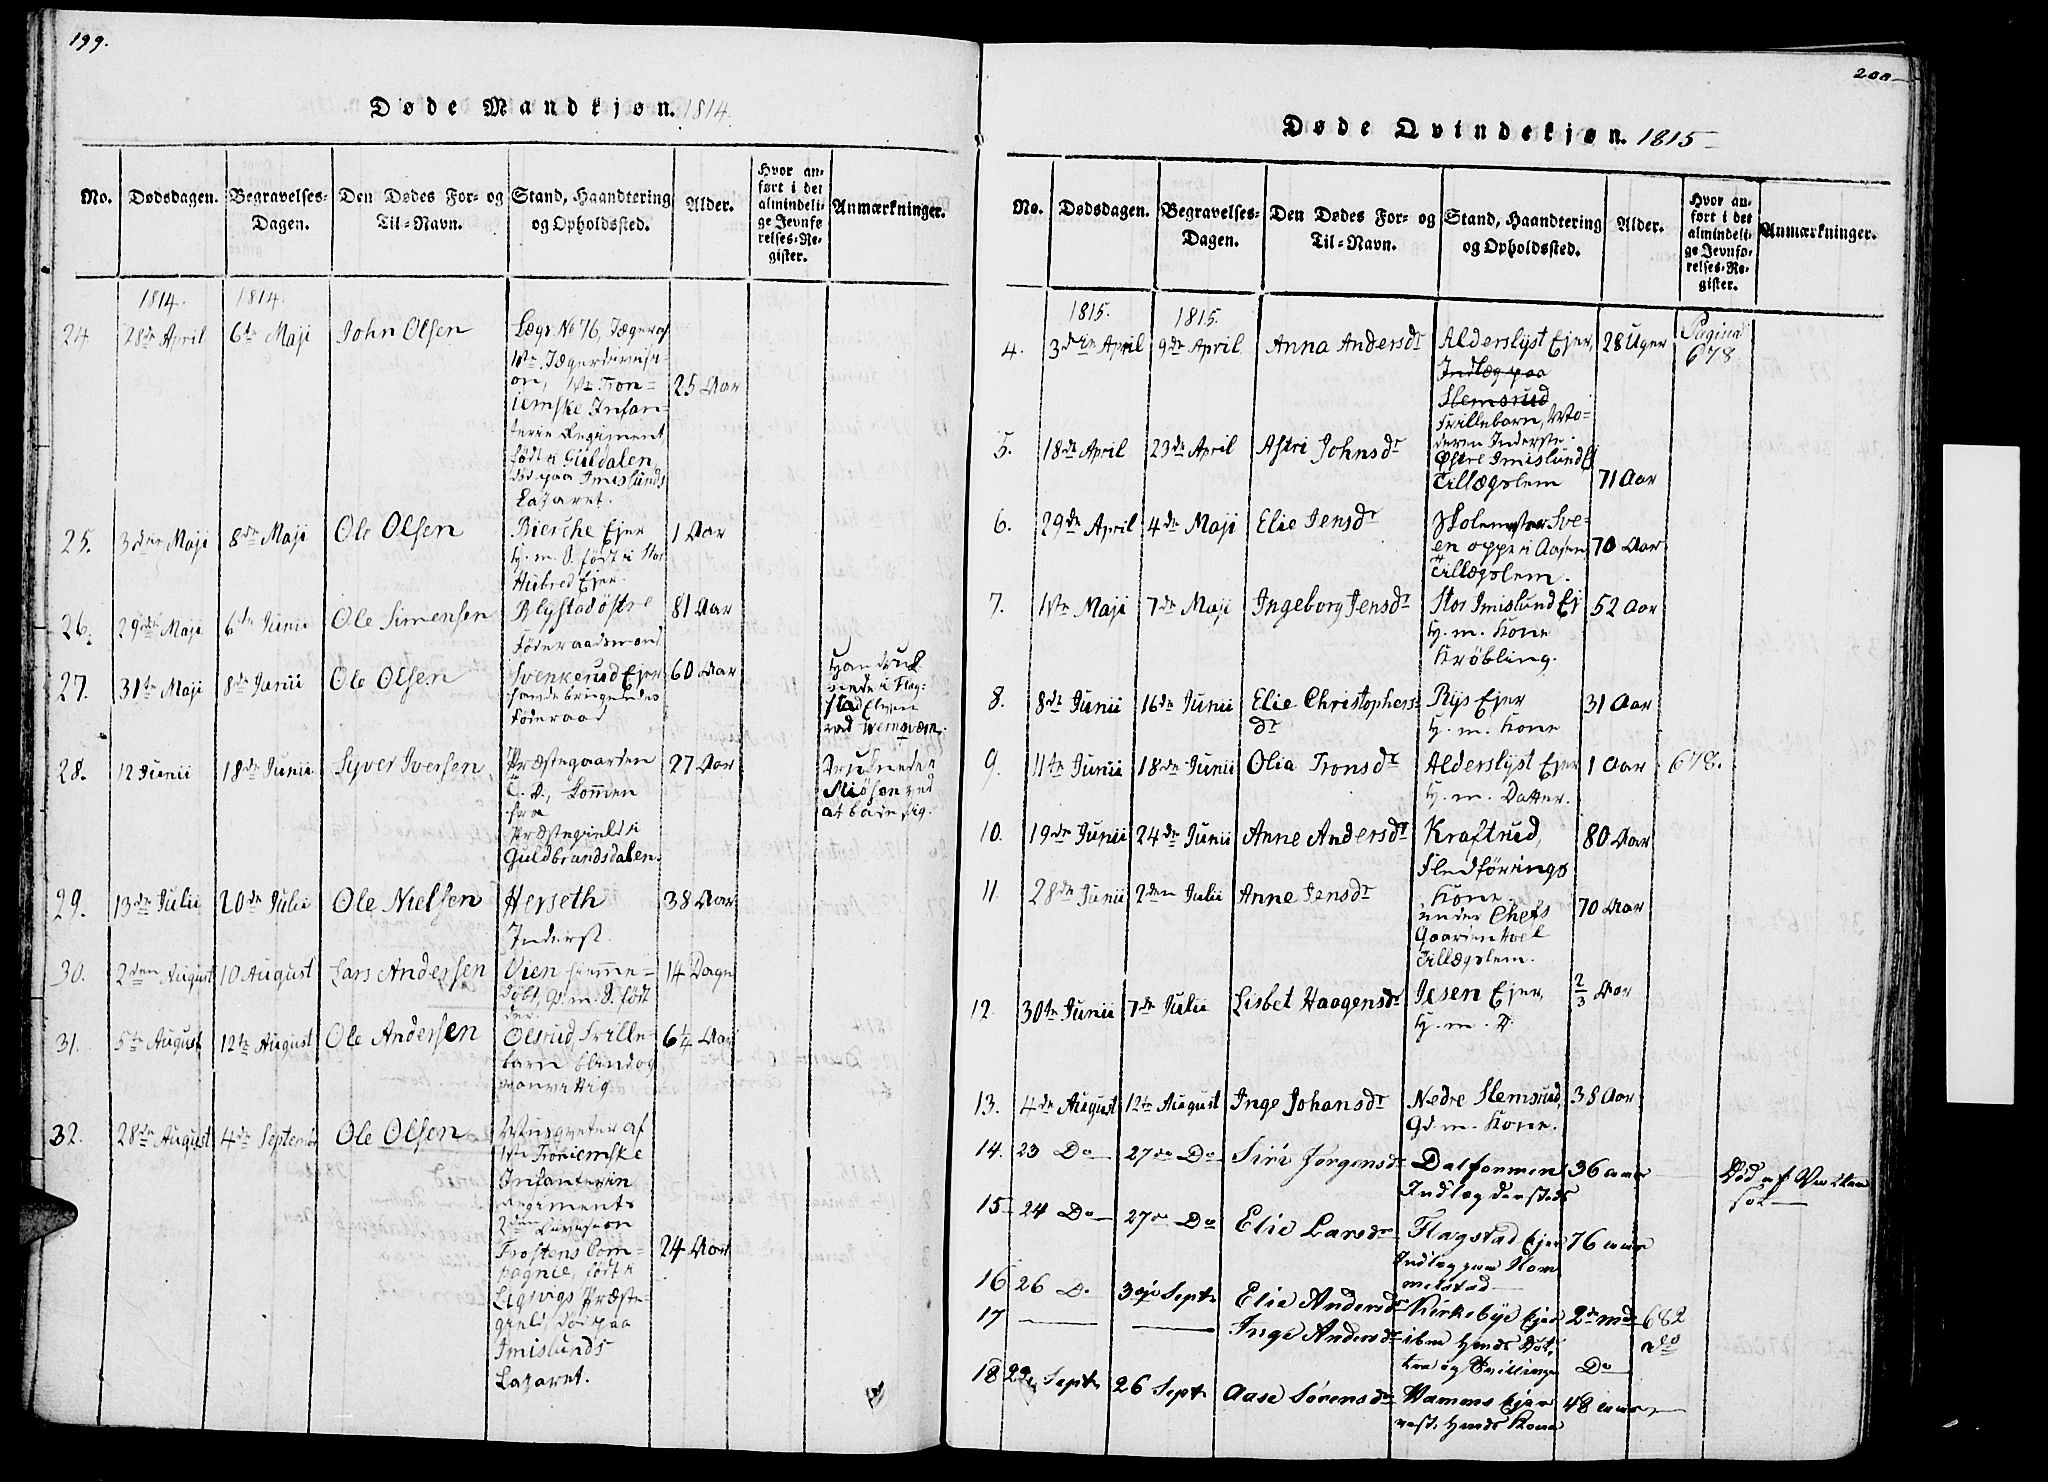 199.
Døde Mandkjøn. 1814.
No.
Dødsdagen.
Begravelses-
Dagen.
Den Dødes For- og
Til-Navn.
Stand, Haandtering
og Opholdssted.
Alder.
Hvor an-
ført i det
almindeli-
ge Jevnfø-
relses-Re-
gister.
Anmærkninger.
1814.
1814.
24
28de April
6te Maji
John Olsen
Lægs No 76, Jæger af
1ste Jægerdevisi-
on, 1ste Tron-
iemske Infan-
terie Regiment
født i Guldalen,
død paa Imislunds
Lazaret.
25 Aar
25.
3den Maji
8de Maji
Ole Olsen
Biersche Ejer
H. m. S. født i Stor
Hubred Ejer.
1 Aar
26.
29de Maji
6te Junii
Ole Simensen
Blystad østre
Føderaadsmand
81 Aar
27.
31te Maji
8de Junii
Ole Olsen
Svenkerud Ejer
Føderaad
60 Aar
Han druk
nede i Flag-
stad Elven
ved
28.
12 Junii
18de Junii
Syver Iversen
Præstegaarden
kommen
fra
Præstegield i
Guldbrandsdalen.
27 Aar
Druknede i
Miøsen ved
at bade sig.
29.
13de Julii
20de Julii
Ole Nielsen
Herseth
Inderst.
38 Aar
30.
2den August
10 August
Lars Andersen
Vien hiemme-
døbt, G. m. S. født
der.
14 Dage
31.
5te August
12te August
Ole Andersen
Olsrud Frille-
barn blind og
vanvittig
6 1/4 Aar
32.
28de August
4de Septembr
Ole Olsen
Musqveter af
1ste Troniemske
Infanterie
Regiments
2den Devision
Frostens Com-
pagnie, født i
Præste-
gield, død paa
Imislunds
Lazaret.
24 Aar
200
Døde Qvindekjøn. 1815
No.
Dødsdagen.
Begravelses-
Dagen.
Den Dødes For- og
Til-Navn.
Stand, Haandtering
og Opholdssted.
Alder.
Hvor an-
ført i det
almindeli-
ge Jevnfø-
relses-Re-
gister.
Anmærkninger.
1815.
1815.
4.
3die April
9de April
Anna Andersdr
Alderslyst Ejer,
Indlæg paa
Slemsrud
Frillebarn, Mo-
deren Inderste.
28 Uger
Pagina
678.
5.
18de April
23de April
Astri Johnsdr
Østre Imislund Ej
Tillægslem
71 Aar
6.
29de April
4de Maji
Elie Jensdr
en oppe i Aasen
Tillægslem.
70 Aar
7.
1ste Maji
7de Maji
Ingeborg Jensdr
Stor Imislund Ej
H. m. Kone
Krøbling.
52 Aar
8.
8de Junii
16de Junii
Elie Christophers-
dr
Rys Ejer
H. m. Kone
31 Aar
9.
11te Junii
18de Junii
Olia Tronsdr
Alderslyst Ejer
H. m. Datter.
1 Aar
678.
10.
19de Junii
24de Junii
Anne Andersdr
Kraftrud,
Fledførings
Kone.
80 Aar
11.
28de Junii
2den Julii
Anne Jensdr
under Chefs
Gaarden Hoel
Tillægslem.
70 Aar
12.
30te Junii
7de Julii
Lisbet Haagensdr
Jesen Ejer,
H. m. D.
2/3 Aar
13.
4de August
12te August
Inge Johansdr
Nedre Slemsrud,
Gd. m. Kone.
38 Aar
14.
23 Do
27de Do
Siri Jørgensdr
Dalfarmen
Indlæg dersteds
36 aar
Død af
sot
15
24 Do
27de Do
Elie Larsdr
Flagstad Ejer
Indlæg paa Kom
melstad
76 aar
16
26 Do
3die Septr
Elie Andersdr
Kirkebye Ejer
2 md
682
17
Inge Andersdr
ibm Hmds Døt-
tre og Tvillinge
Do
do
18
22de Septr
26 Septr
Aase Sørensdr
Vammes Ejer
vest. Hmds Kone
48 aar